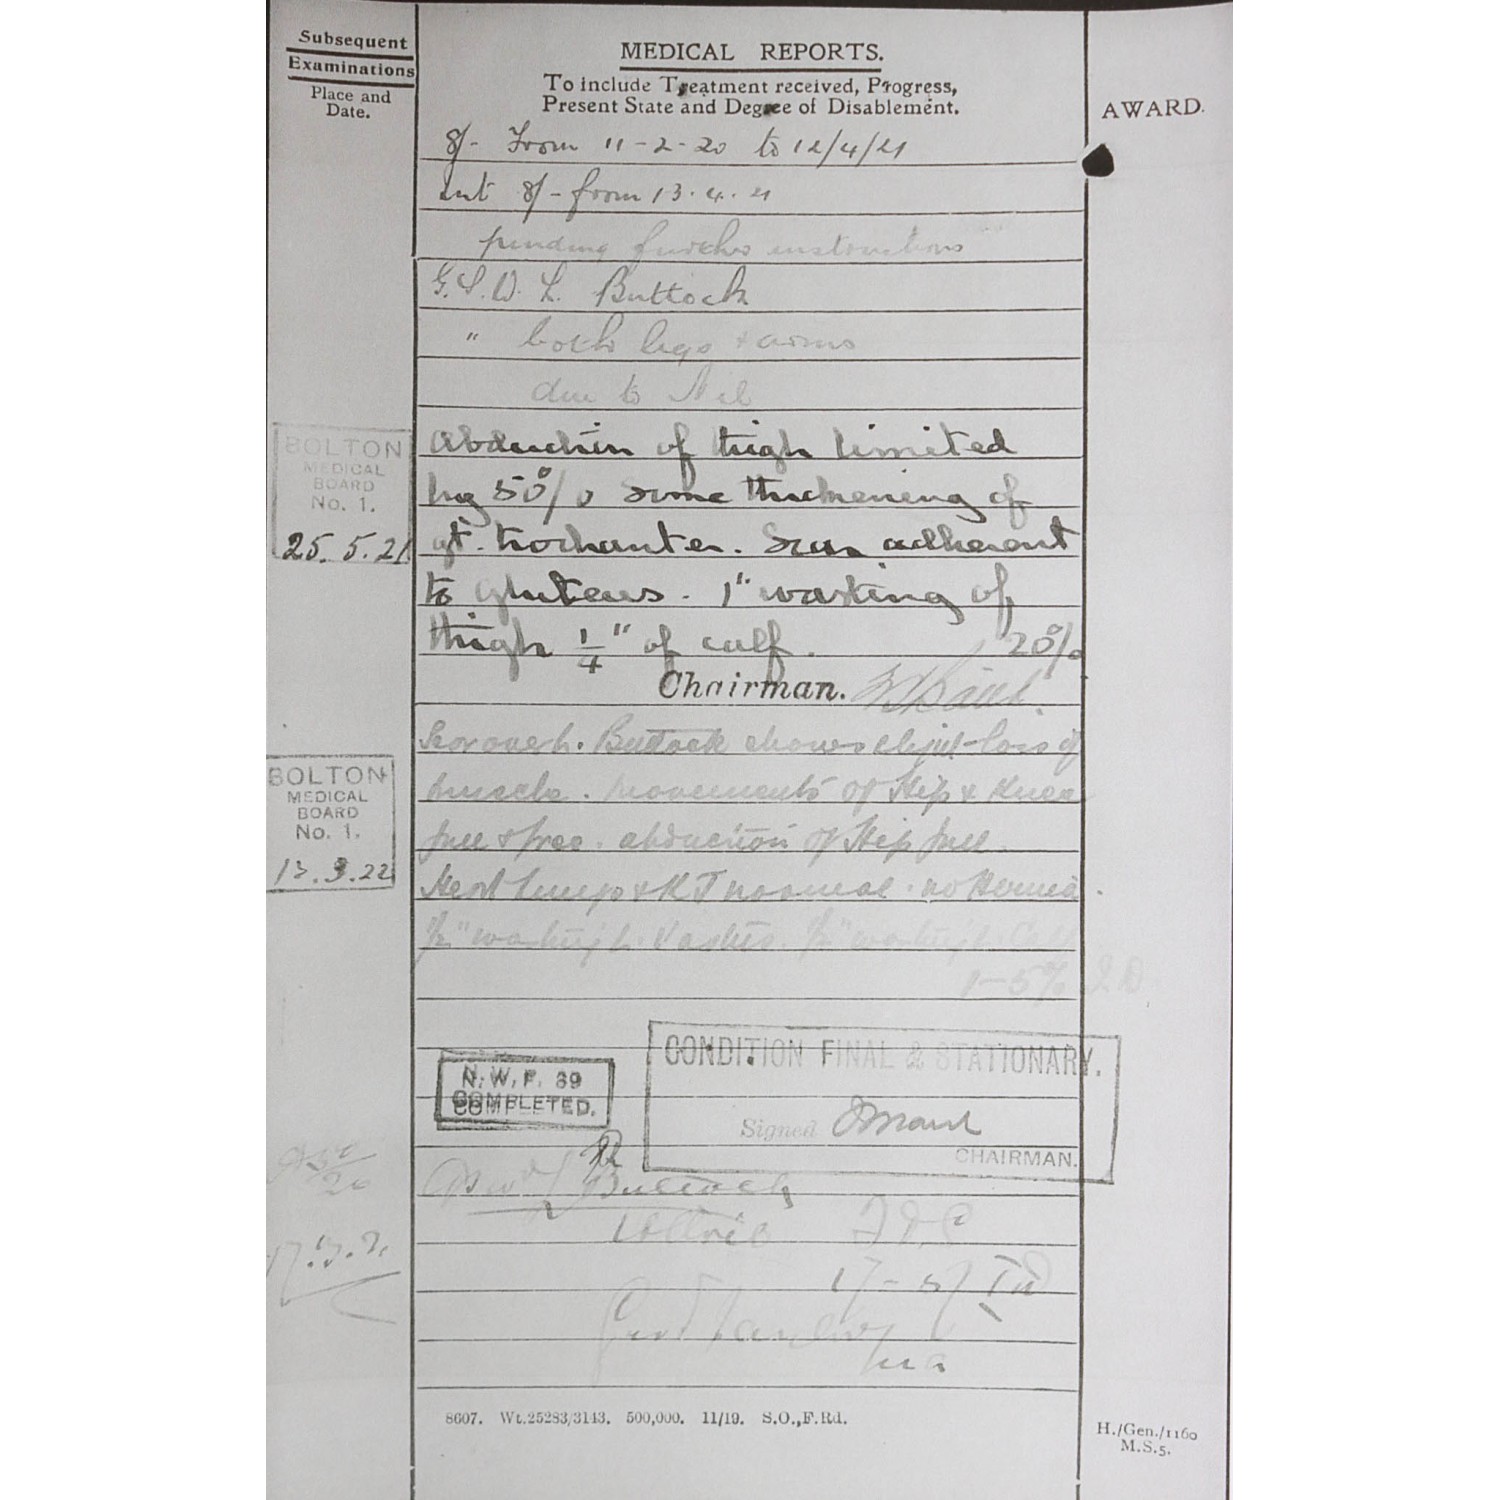 Subsequent
Examinations
Place and
Date.
MEDICAL REPORTS.
To include Treatment received, Progress,
Present State and Degree of Disablement.
AWARD.
8/- From 11-2-20 to 12/4/21
8/- from 13.4.21
pending further instructions
G.S.W. L. Buttock
" both legs & arms
due to Nil
BOLTON
MEDICAL
BOARD
No. 1.
25.5.21
Abduction of thigh limited
by 50% some thickening of
gt. trochanter. Scar adherent
to gluteus. 1" wasting of
thigh 1/4" of calf. 20%
Chairman.
BOLTON
MEDICAL
BOARD
No. 1.
13.3.22
Buttock shows slight loss of
muscle. movements of Hip & Knee
full & free. abduction of Hip full.
Heart Lungs & KJ normal. no Hernia.
1/2" wasting L. 1/2" wasting L. Calf
1-5%
CONDITION FINAL & STATIONARY.
Signed
CHAIRMAN.
N.W.F. 69
COMPLETED.
Buttock
8607. Wt.25283/3143. 500,000. 11/19. S.O.,F.Rd.
H./Gen./1160
M.S.5.